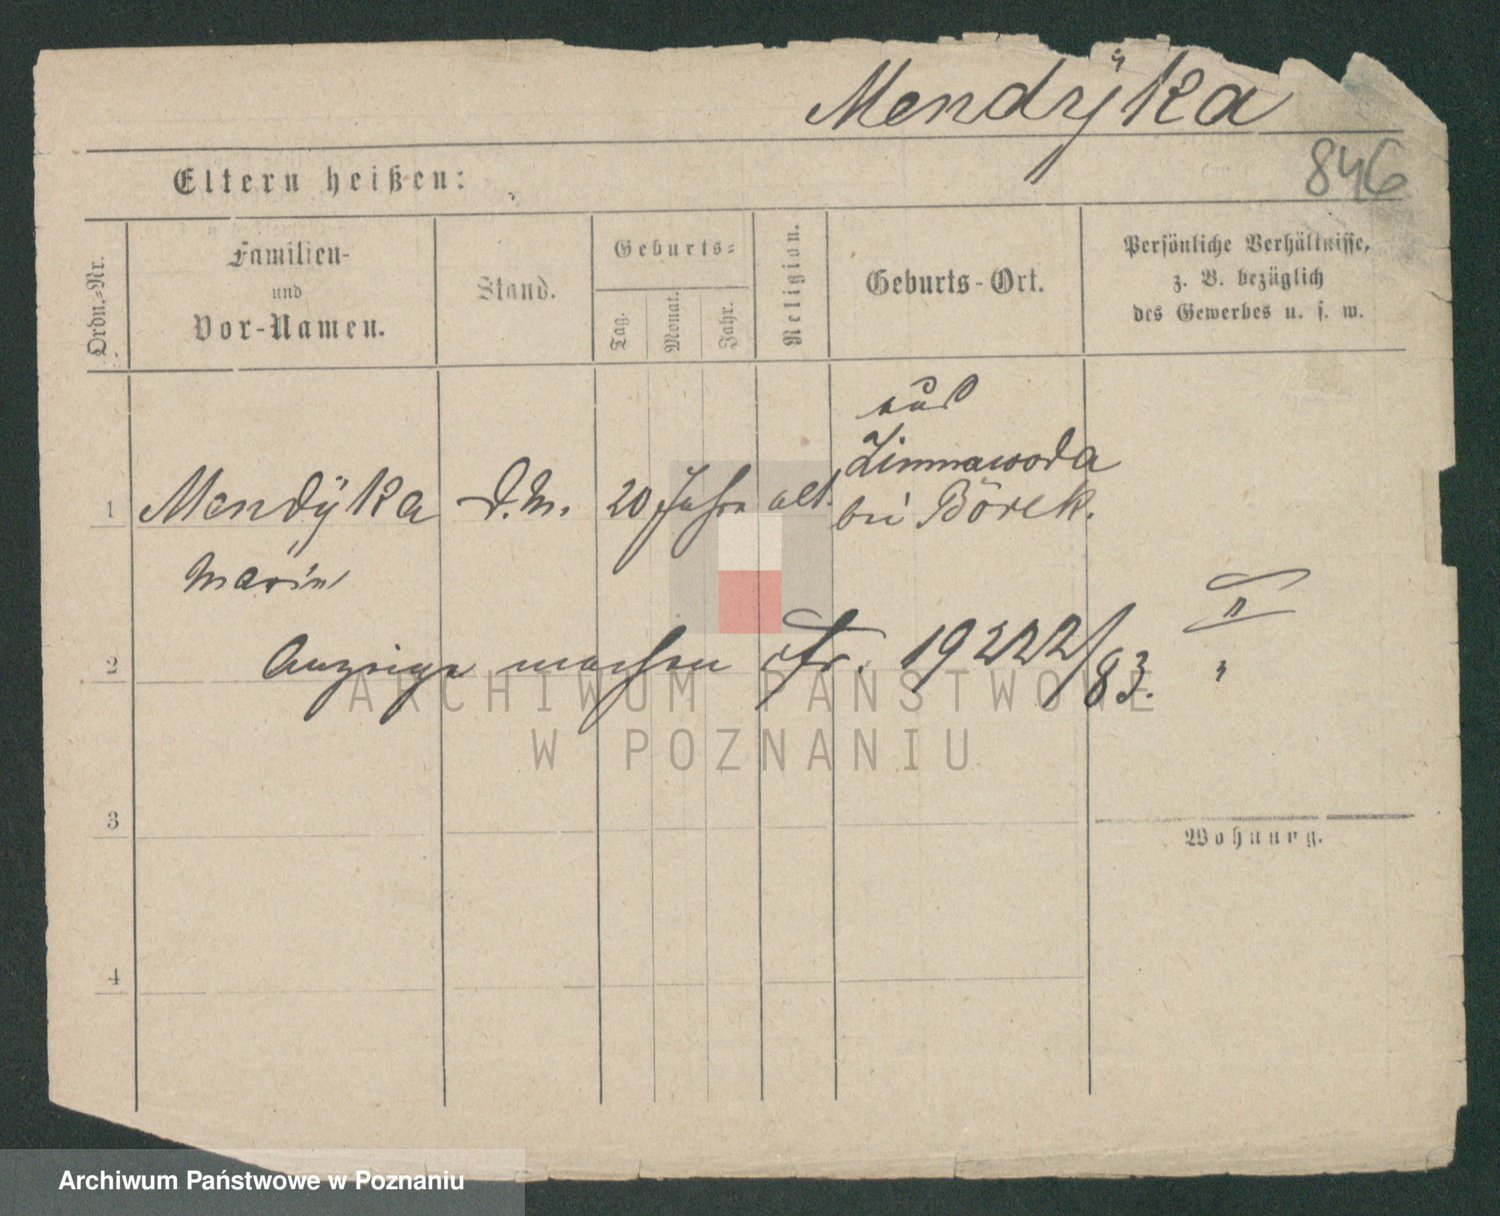 Mendÿka
846
Eltern heißen:
Ordn.=Nr.
Familien-
und
Vor-Namen.
Stand.
Geburts=
Tag.
Monat.
Jahr.
Religion.
Geburts-Ort.
Persönliche Verhältnisse,
z. B. bezüglich
des Gewerbes u. s. w.
aus
Zimnawoda
1 Mendÿka D.M. 20 Jahre alt. bei Borek.
Marie
II
2 Anzeige machen Fr. 19222/83. "
ARCHIWUM PAŃSTWOWE
W POZNANIU
3
Wohnung.
4
Archiwum Państwowe w Poznaniu